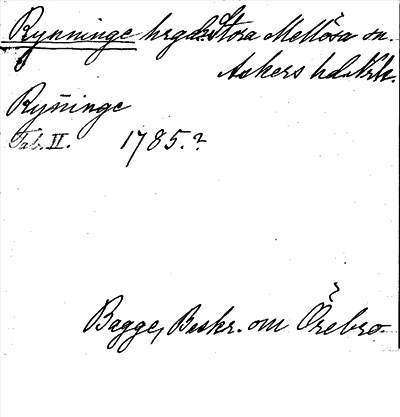 Rynninge hrgd. Stora Mellösa sn.
Askers hd. Nrk.
Ryñinge
Tab. II. 1785.?
Bagge, Beskr. om Örebro.